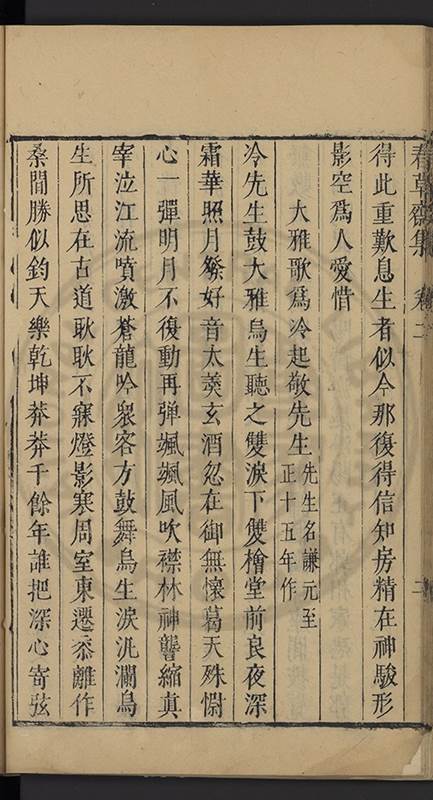 春草齋集 卷二 二
得此重歎息生者似今那復得信知房精在神駿形
影空爲人愛惜
大雅歌爲冷起敬先生 先生名謙元至
正十五年作
冷先生鼓大雅烏生聽之雙淚下雙檜堂前良夜深
霜華照月發好音太羹玄酒忽在御無懷葛天殊惘
心一彈明月不復動再弹颯颯風吹襟林神聾縮真
宰泣江流噴激蒼龍吟衆客方鼓舞烏生淚汍瀾烏
生所思在古道耿耿不寐燈影寒周室東遷黍離作
桑間勝似鈞天樂乾坤莽莽千餘年誰把深心寄弦